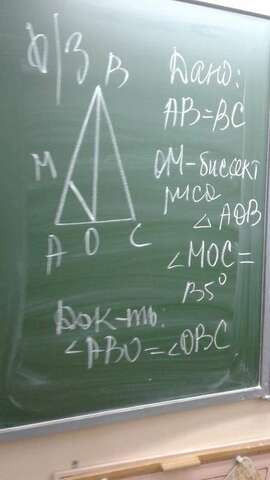 Д/З
B
M
A O C
Дано:
AB=BC
OM-биссект
риса
△ AOB
∠MOC=
135°
Док-ть.
∠ABO=∠OBC